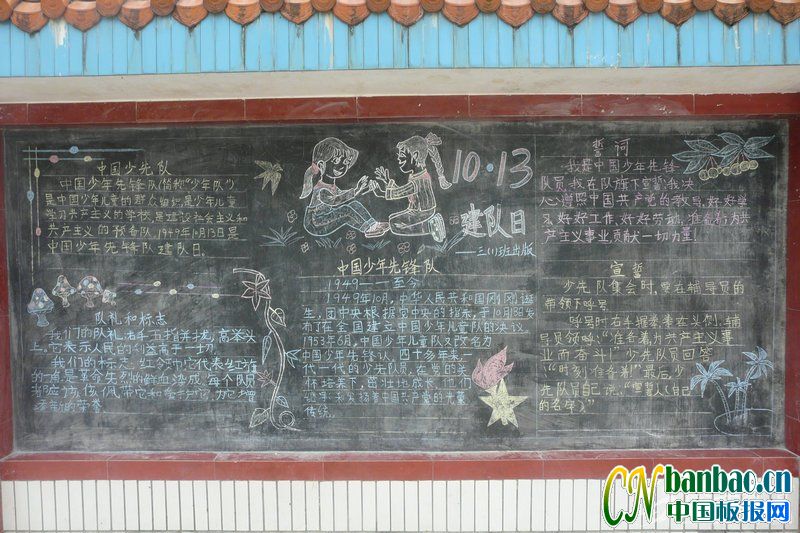 中国少先队
中国少年先锋队(简称"少年队")
是中国少年儿童的群众组织,是少年儿童
学习共产主义的学校,是建设社会主义和
共产主义的预备队,1949年10月13日是
中国少年先锋队建队日。
队礼和标志
我们的队礼:右手五指并拢,高举头
上。它表示人民的利益高于一切。
我们的标志:红领巾。它代表红旗
的一角,是革命先烈的鲜血染成,每个队员
10·13
建队日
——三(1)班出版
中国少年先锋队
1949——至今
1949年10月,中华人民共和国刚刚诞
生,团中央根据党中央的指示,于10月13日发
布了在全国建立中国少年儿童队的决议。
1953年6月,中国少年儿童队又改名为
中国少年先锋队,四十多年来,一
代一代的少先队员,在党的关
怀培养下,茁壮地成长,他们
继承和发扬着中国共产党的光荣
传统。
誓词
我是中国少年先锋
队员,我在队旗下宣誓:我决
心遵照中国共产党的教导,好好学
习,好好工作,好好劳动,准备着:为共
产主义事业贡献一切力量!
宣誓
少先队集会时,要在辅导员的
带领下呼号
呼号时右手握拳举在头侧,辅
导员领呼:"准备着:为共产主义事
业而奋斗!"少先队员回答:
"时刻准备着!"最后少
先队员自己说:"宣誓人(自己
的名字)"
CNbanbao.cn
中国板报网